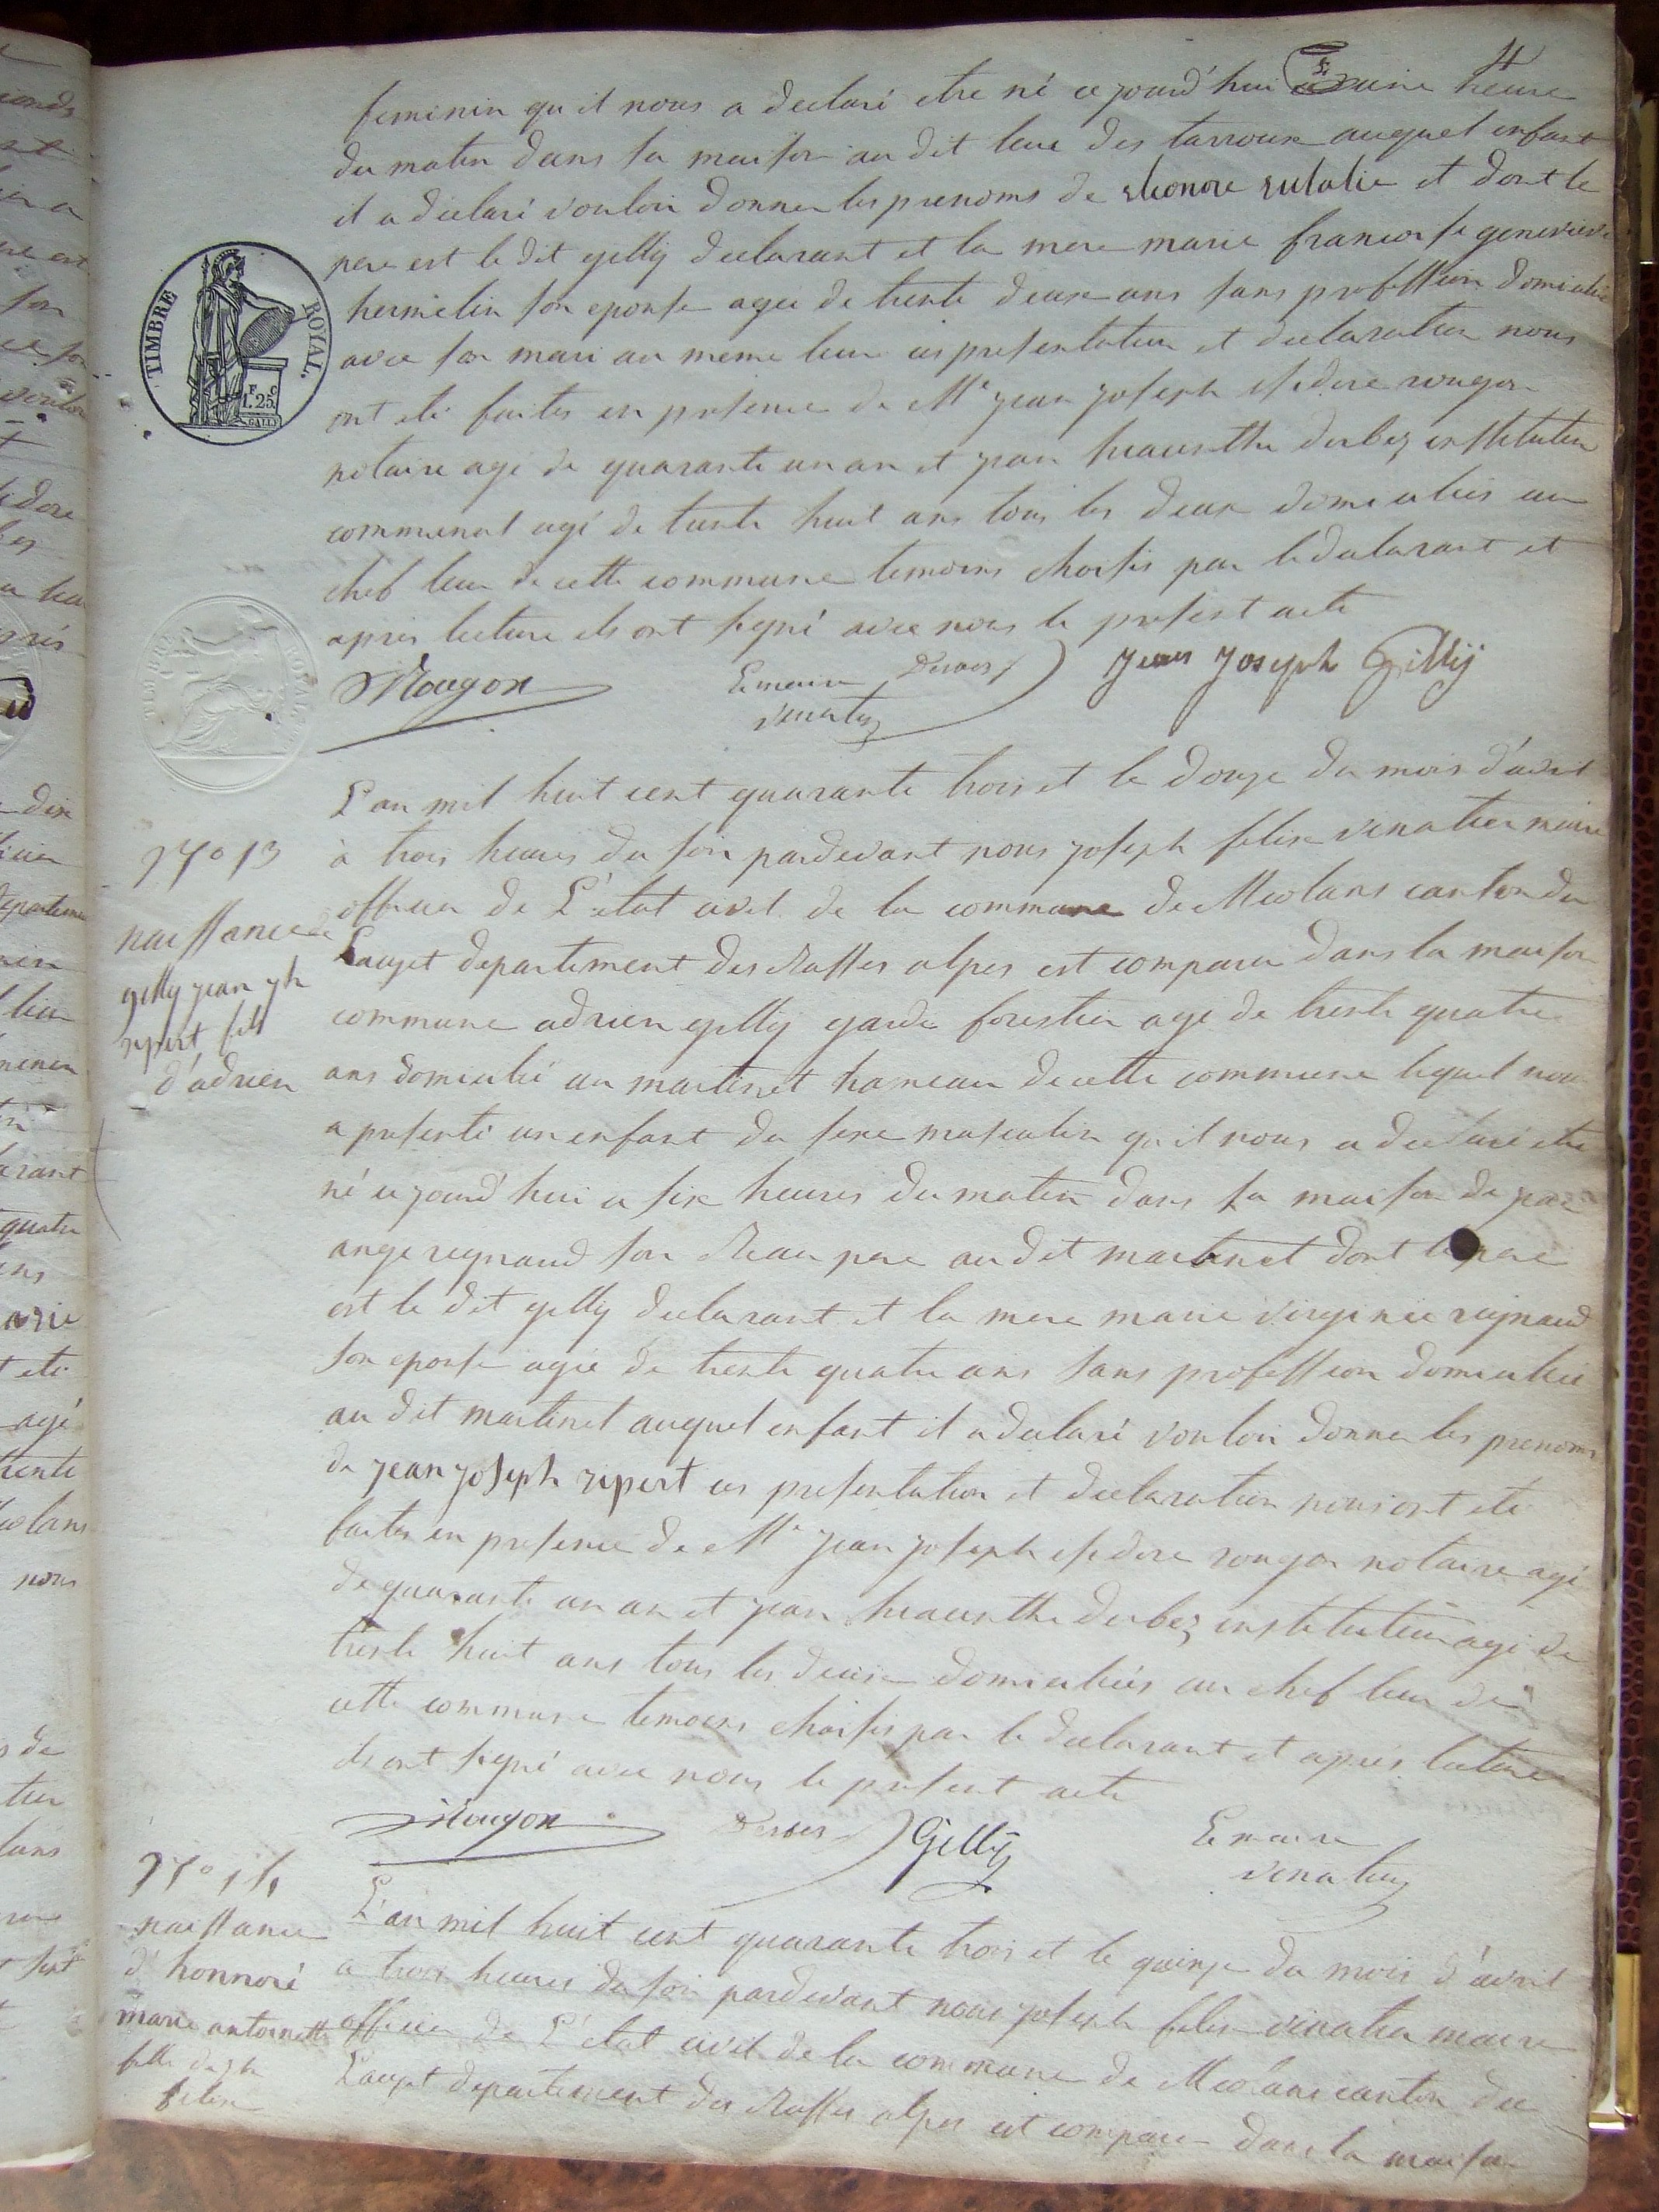 4
feminin qu'il nous a declaré etre né ce jourd'hui a une heure
du matin dans sa maison au dit lieu des tarroux auquel enfant
il a declaré vouloir donner les prenoms de eleonore eulalie et dont le
pere est le dit gilly declarant et la mere marie françoise genevieve
hermelin son epouse agée de trente deux ans sans profession domiciliée
avec son mari au meme lieu ces presentation et declaration nous
ont eté faites en presence de Me jean joseph isidore rougon
notaire agé de quarante un an et jean hiacinthe derbez instituteur
communal agé de trente huit ans tous les deux domiciliés au
chef lieu de cette commune temoins choisis par le declarant et
apres lecture ils ont signé avec nous le present acte
TIMBRE ROYAL.
F. C.
1.25.
Rougon Le maire Derbez Jean Joseph Gilly
vinatier
N° 13
naissance de
gilly jean jh
ripert fils
d'adrien
L'an mil huit cent quarante trois et le douze du mois d'avril
à trois heures du soir pardevant nous joseph felix vinatier maire
officier de L'etat civil de la commune de Meolans canton du
Lauzet departement des Basses alpes est comparu dans la maison
commune adrien gilly garde forestier agé de trente quatre
ans domicilié au martinet hameau de cette commune lequel nous
a presenté un enfant du sexe masculin qu'il nous a declaré etre
né ce jourd'hui a six heures du matin dans la maison de
ange reynaud son Beau pere au dit martinet dont le pere
est le dit gilly declarant et la mere marie virginie reynaud
son epouse agée de trente quatre ans sans profession domiciliée
au dit martinet auquel enfant il a declaré vouloir donner les prenoms
de jean joseph ripert ces presentation et declaration nous ont eté
faites en presence de Me jean joseph isidore rougon notaire agé
de quarante un an et jean hiacinthe derbez instituteur agé de
trente huit ans tous les deux domiciliés au chef lieu de
cette commune temoins choisis par le declarant et apres lecture
ils ont signé avec nous le present acte
Rougon Derbez Gilly Le maire
vinatier
N° 14
naissance
d'honnoré
marie antoinette
fille de jh
felix
L'an mil huit cent quarante trois et le quinze du mois d'avril
a trois heures du soir pardevant nous joseph felix vinatier maire
officier de L'etat civil de la commune de Meolans canton du
Lauzet departement des Basses alpes est comparu dans la maison